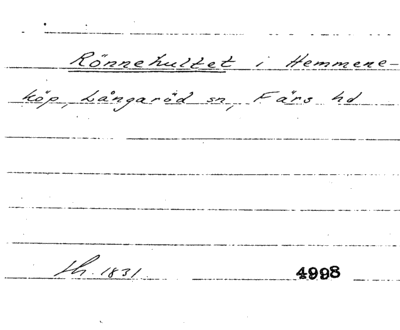 Rönnehultet i Hemmene-
köp, Långaröd sn, Färs hd
th. 1831. 4998